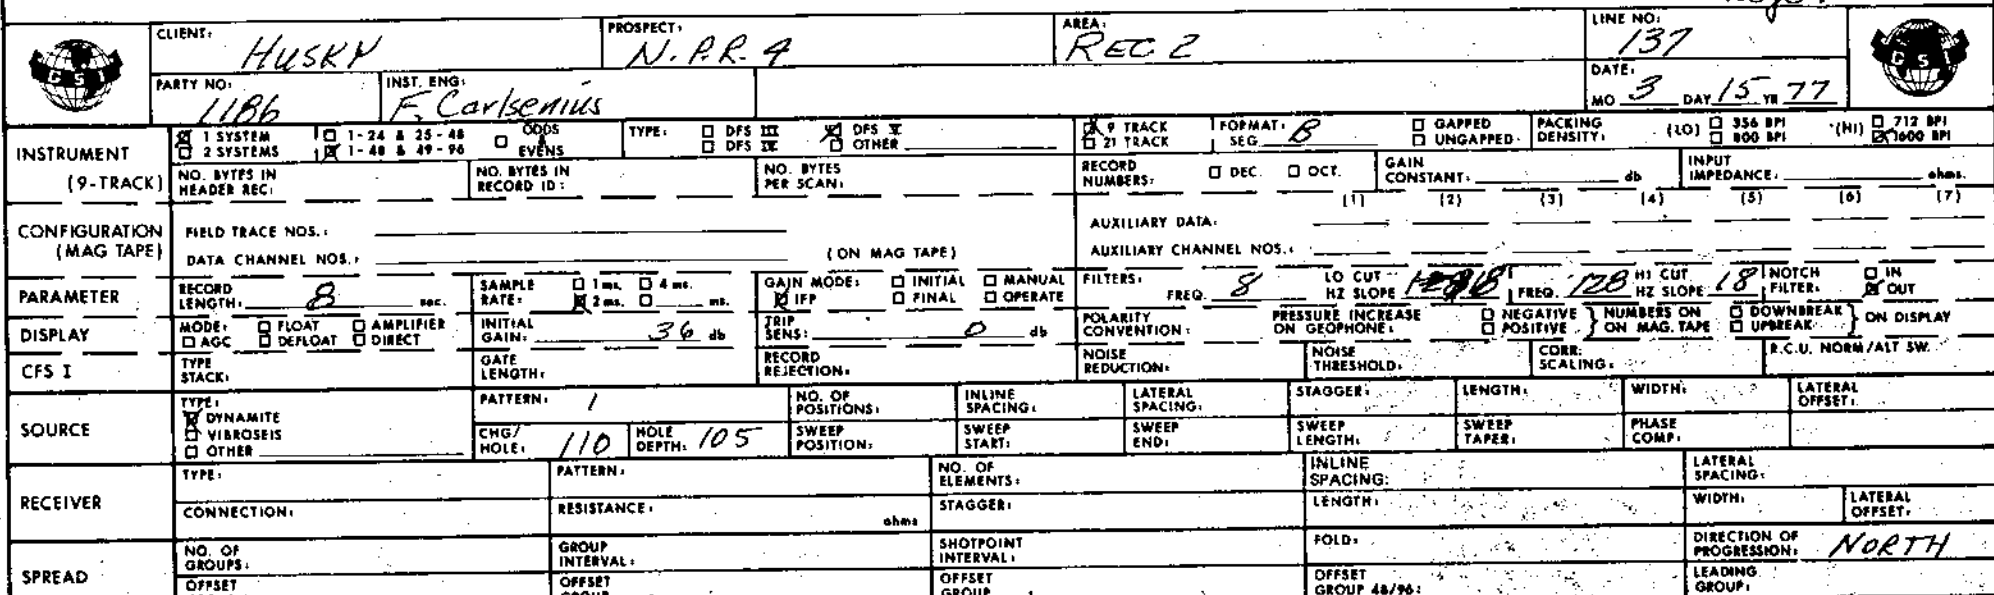 CLIENT: HUSKY PROSPECT: N.P.R. 4 AREA: REC 2 LINE NO: 137
GSI GSI
PARTY NO: 1186 INST. ENG: F. Carlsenius DATE: MO 3 DAY 15 YR 77
INSTRUMENT (9-TRACK)
☒ 1 SYSTEM ☐ 1-24 & 25-48 ☐ ODDS & EVENS TYPE: ☐ DFS III ☒ DFS V ☒ 9 TRACK FORMAT: SEG B ☐ GAPPED PACKING DENSITY: (LO) ☐ 356 BPI (HI) ☐ 712 BPI
☐ 2 SYSTEMS ☒ 1-48 & 49-96 ☐ DFS IV ☐ OTHER ☐ 21 TRACK ☐ UNGAPPED ☐ 800 BPI ☒ 1600 BPI
NO. BYTES IN HEADER REC: NO. BYTES IN RECORD ID: NO. BYTES PER SCAN: RECORD NUMBERS: ☐ DEC. ☐ OCT. GAIN CONSTANT: db INPUT IMPEDANCE: ohms.
CONFIGURATION (MAG TAPE)
(1) (2) (3) (4) (5) (6) (7)
FIELD TRACE NOS.: AUXILIARY DATA:
DATA CHANNEL NOS.: (ON MAG TAPE) AUXILIARY CHANNEL NOS.:
PARAMETER
RECORD LENGTH: 8 sec. SAMPLE RATE: ☐ 1 ms. ☐ 4 ms. ☒ 2 ms. ☐ ms. GAIN MODE: ☐ INITIAL ☐ MANUAL ☒ IFP ☐ FINAL ☐ OPERATE FILTERS: FREQ. 8 LO CUT HZ SLOPE 18 FREQ. 128 HI CUT HZ SLOPE 18 NOTCH FILTER: ☐ IN ☒ OUT
DISPLAY
MODE: ☐ FLOAT ☐ AMPLIFIER ☐ AGC ☐ DEFLOAT ☐ DIRECT INITIAL GAIN: 36 db TRIP SENS: 0 db POLARITY CONVENTION: PRESSURE INCREASE ON GEOPHONE: ☐ NEGATIVE ☐ POSITIVE } NUMBERS ON MAG. TAPE ☐ DOWNBREAK ☐ UPBREAK } ON DISPLAY
CFS I TYPE STACK: GATE LENGTH: RECORD REJECTION: NOISE REDUCTION: NOISE THRESHOLD: CORR: SCALING: R.C.U. NORM/ALT SW.
SOURCE
TYPE: ☒ DYNAMITE ☐ VIBROSEIS ☐ OTHER
PATTERN: 1 NO. OF POSITIONS: INLINE SPACING: LATERAL SPACING: STAGGER: LENGTH: WIDTH: LATERAL OFFSET:
CHG/HOLE: 110 HOLE DEPTH: 105 SWEEP POSITION: SWEEP START: SWEEP END: SWEEP LENGTH: SWEEP TAPER: PHASE COMP:
RECEIVER
TYPE: PATTERN: NO. OF ELEMENTS: INLINE SPACING: LATERAL SPACING:
CONNECTION: RESISTANCE: ohms STAGGER: LENGTH: WIDTH: LATERAL OFFSET:
SPREAD
NO. OF GROUPS: GROUP INTERVAL: SHOTPOINT INTERVAL: FOLD: DIRECTION OF PROGRESSION: NORTH
OFFSET OFFSET OFFSET OFFSET GROUP 48/96: LEADING GROUP: